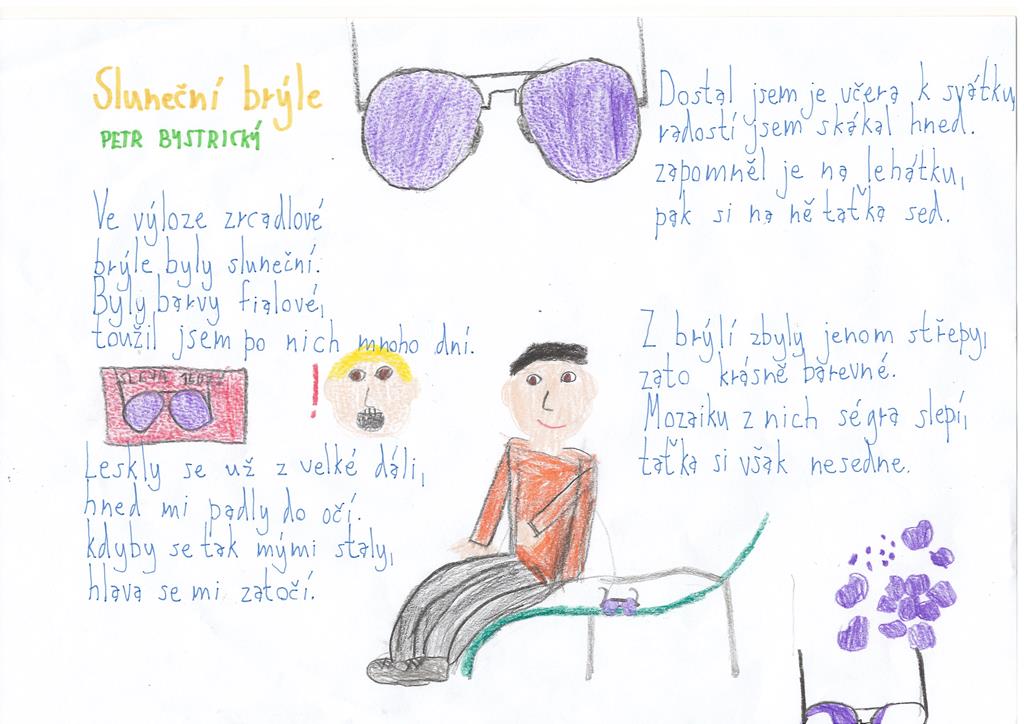 Sluneční brýle
PETR BYSTRICKÝ
Ve výloze zrcadlové
brýle byly sluneční.
Byly barvy fialové,
toužil jsem po nich mnoho dní.
!
Leskly se už z velké dáli,
hned mi padly do očí.
kdyby se tak mými staly,
hlava se mi zatočí.
Dostal jsem je včera k svátku,
radostí jsem skákal hned.
zapomněl je na lehátku,
pak si na ně taťka sed.
Z brýlí zbyly jenom střepy,
zato krásně barevné.
Mozaiku z nich ségra slepí,
taťka si však nesedne.